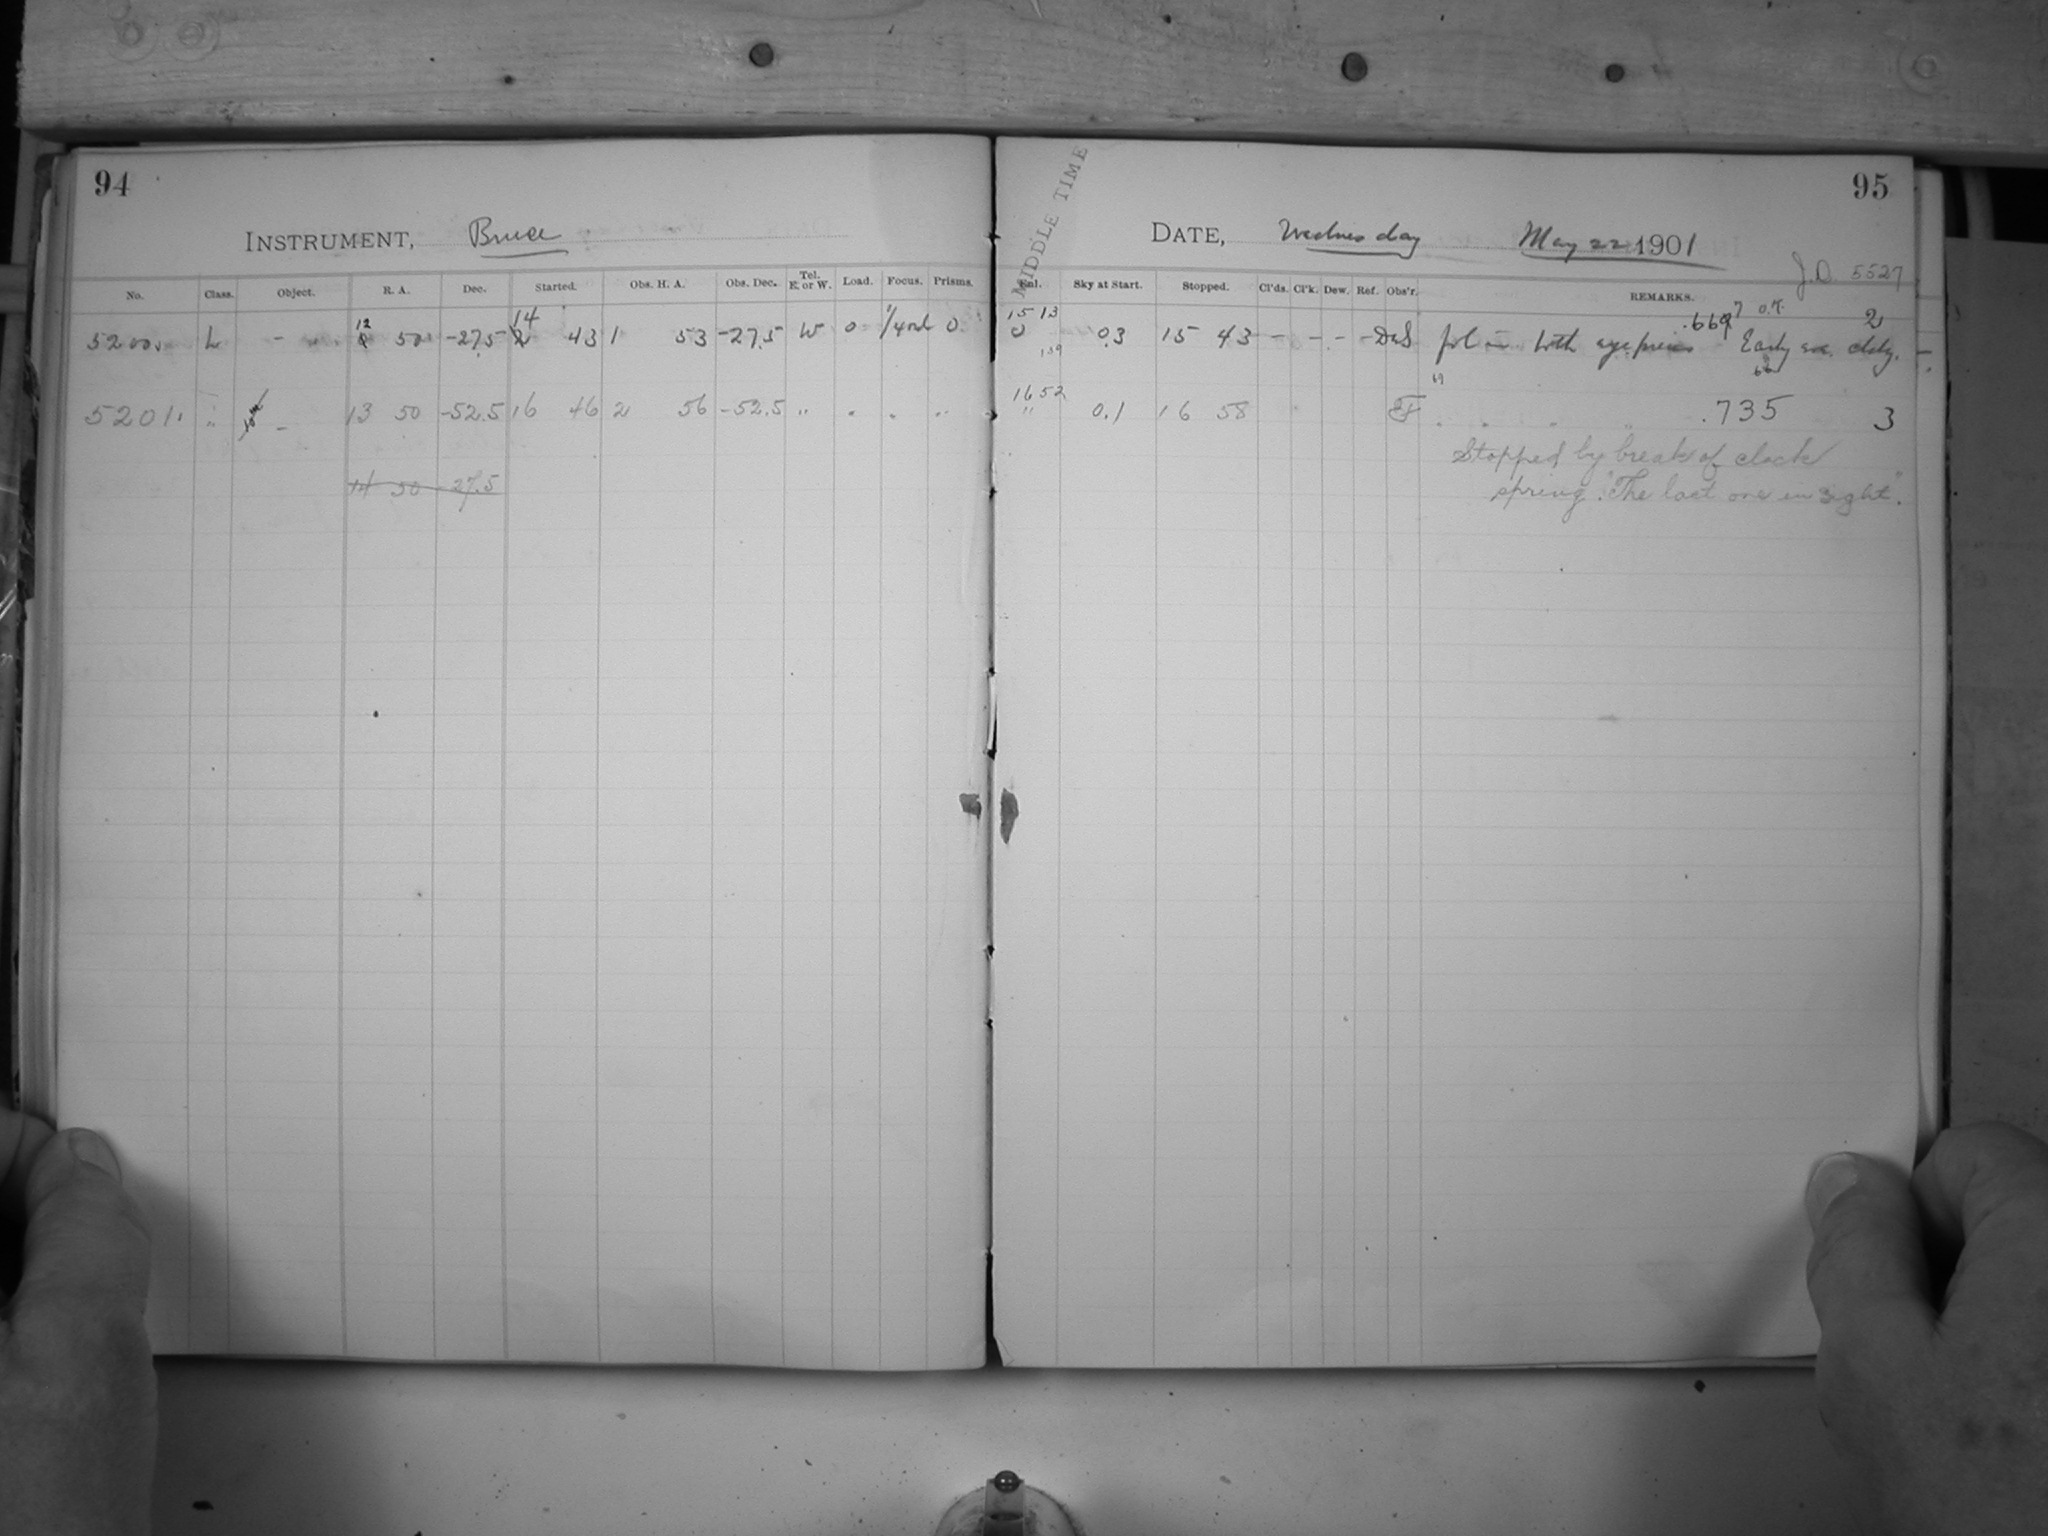 94
INSTRUMENT, Bruce
No. Class. Object. R. A. Dec. Started. Obs. H. A. Obs. Dec. Tel. E. or W. Load. Focus. Prisms.
5200 L - 12 50 -27.5 14 43 1 53 -27.5 W 0 0
5201 " - 13 50 -52.5 16 46 2 56 -52.5 " " " "
14 50 -27.5
95
MIDDLE TIME
DATE, Wednesday May 22 1901
J.D. 5527
Enl. Sky at Start. Stopped. Cl'ds. Cl'k. Dew. Ref. Obs'r. REMARKS.
15 13
0 0.3 15 43 - - - - with eyepiece .669 Early 2
16 52
" 0.1 16 58 F .735 3
Stopped by break of clock
spring. "The last one in sight".